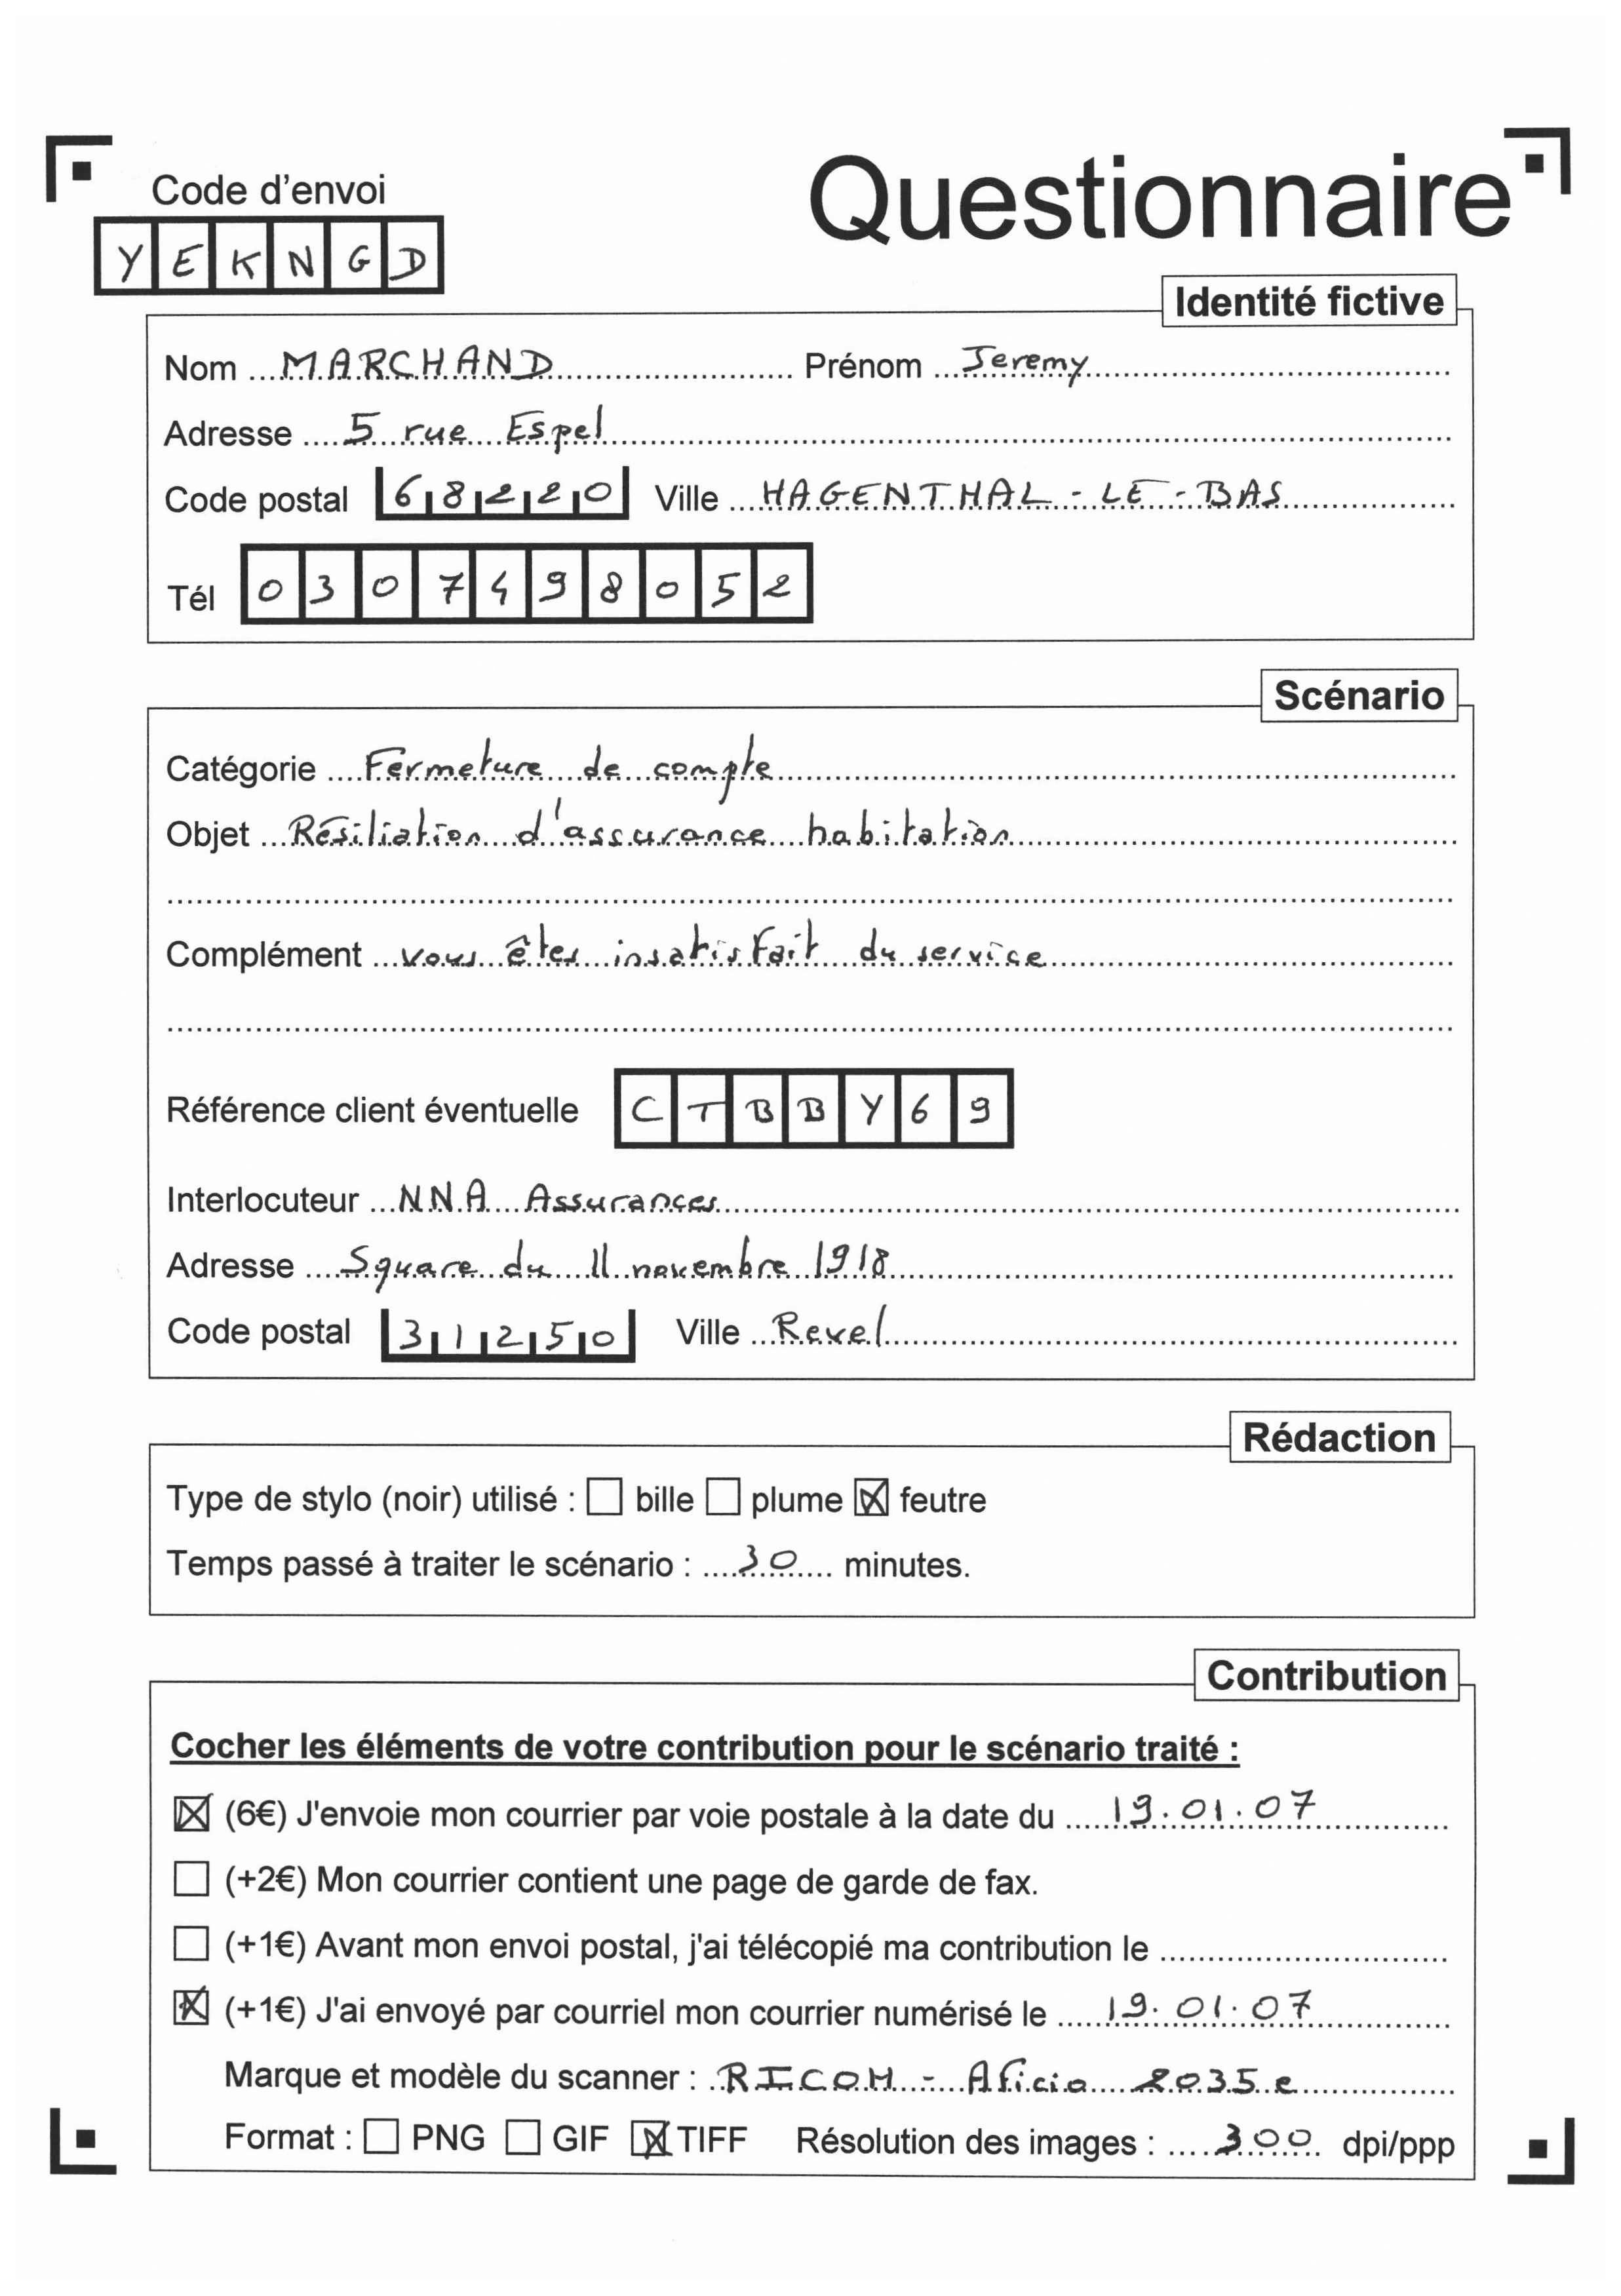 Questionnaire
Code d'envoi
YEKNGD
Identité fictive
Nom MARCHAND Prénom Jeremy
Adresse 5 rue Espel
Code postal 68220 Ville HAGENTHAL-LE-BAS
Tél 0307498052
Scénario
Catégorie Fermeture de compte
Objet Résiliation d'assurance habitation
Complément vous êtes insatisfait du service
Référence client éventuelle CTBBY69
Interlocuteur NNA Assurances
Adresse Square du 11 novembre 1918
Code postal 31250 Ville Revel
Rédaction
Type de stylo (noir) utilisé : ☐ bille ☐ plume ☒ feutre
Temps passé à traiter le scénario : 30 minutes.
Contribution
Cocher les éléments de votre contribution pour le scénario traité :
☒ (6€) J'envoie mon courrier par voie postale à la date du 19.01.07
☐ (+2€) Mon courrier contient une page de garde de fax.
☐ (+1€) Avant mon envoi postal, j'ai télécopié ma contribution le
☒ (+1€) J'ai envoyé par courriel mon courrier numérisé le 19.01.07
Marque et modèle du scanner : RICOH - Aficio 2035e
Format : ☐ PNG ☐ GIF ☒ TIFF Résolution des images : 300 dpi/ppp